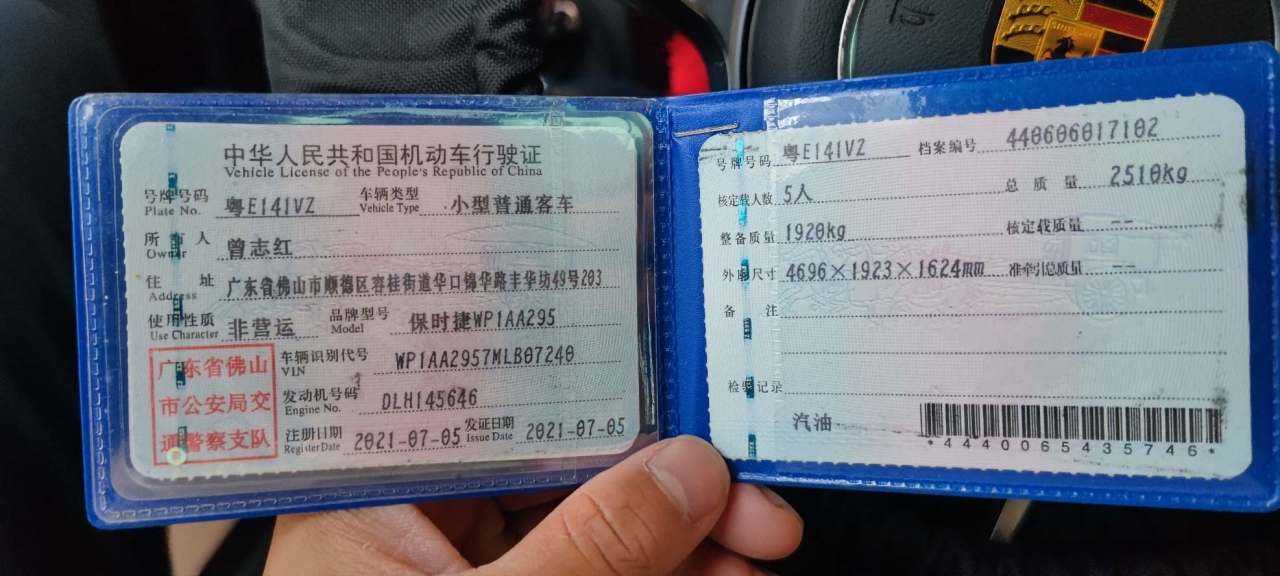 中华人民共和国机动车行驶证
Vehicle License of the People's Republic of China
号牌号码 粤E141VZ 车辆类型 小型普通客车
Plate No. Vehicle Type
所有人 曾志红
Owner
住址 广东省佛山市顺德区容桂街道华口锦华路丰华坊49号203
Address
使用性质 非营运 品牌型号 保时捷WP1AA295
Use Character Model
广东省佛山
市公安局交
通警察支队
车辆识别代号 WP1AA2957MLB07240
VIN
发动机号码 DLH145646
Engine No.
注册日期 2021-07-05 发证日期 2021-07-05
Register Date Issue Date
号牌号码 粤E141VZ 档案编号 440606017102
核定载人数 5人 总质量 2510kg
整备质量 1920kg 核定载质量 --
外廓尺寸 4696×1923×1624mm 准牵引总质量 --
备注
检验记录
汽油
*4440065435746*